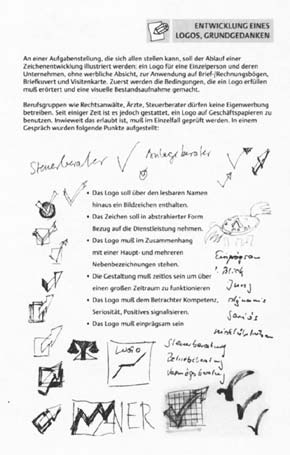 ENTWICKLUNG EINES
LOGOS, GRUNDGEDANKEN
An einer Aufgabenstellung, die sich allen stellen kann, soll der Ablauf einer
Zeichenentwicklung illustriert werden: ein Logo für eine Einzelperson und deren
Unternehmen, ohne werbliche Absicht, zur Anwendung auf Brief-/Rechnungsbögen,
Briefkuvert und Visitenkarte. Zuerst werden die Bedingungen, die ein Logo erfüllen
muß erörtert und eine visuelle Bestandsaufnahme gemacht.
Berufsgruppen wie Rechtsanwälte, Ärzte, Steuerberater dürfen keine Eigenwerbung
betreiben. Seit einiger Zeit is es jedoch gestattet, ein Logo auf Geschäftspapieren zu
benutzen. Inwieweit das erlaubt ist, muß im Einzelfall geprüft werden. In einem
Gespräch wurden folgende Punkte aufgestellt:
Steuerberater Anlageberater
• Das Logo soll über den lesbaren Namen
hinaus ein Bildzeichen enthalten.
• Das Zeichen soll in abstrahierter Form
Bezug auf die Dienstleistung nehmen.
• Das Logo muß im Zusammenhang
mit einer Haupt- und mehreren
Nebenbezeichnungen stehen.
• Die Gestaltung muß zeitlos sein um über
einen großen Zeitraum zu funktionieren
• Das Logo muß dem Betrachter Kompetenz,
Seriosität, Positives signalisieren.
• Das Logo muß einprägsam sein
Einprägsam
Blick
Jung
dynamis
seriös
LOGO
Steuerberatung
Betriebsberatung
Vermögensberatung
NER